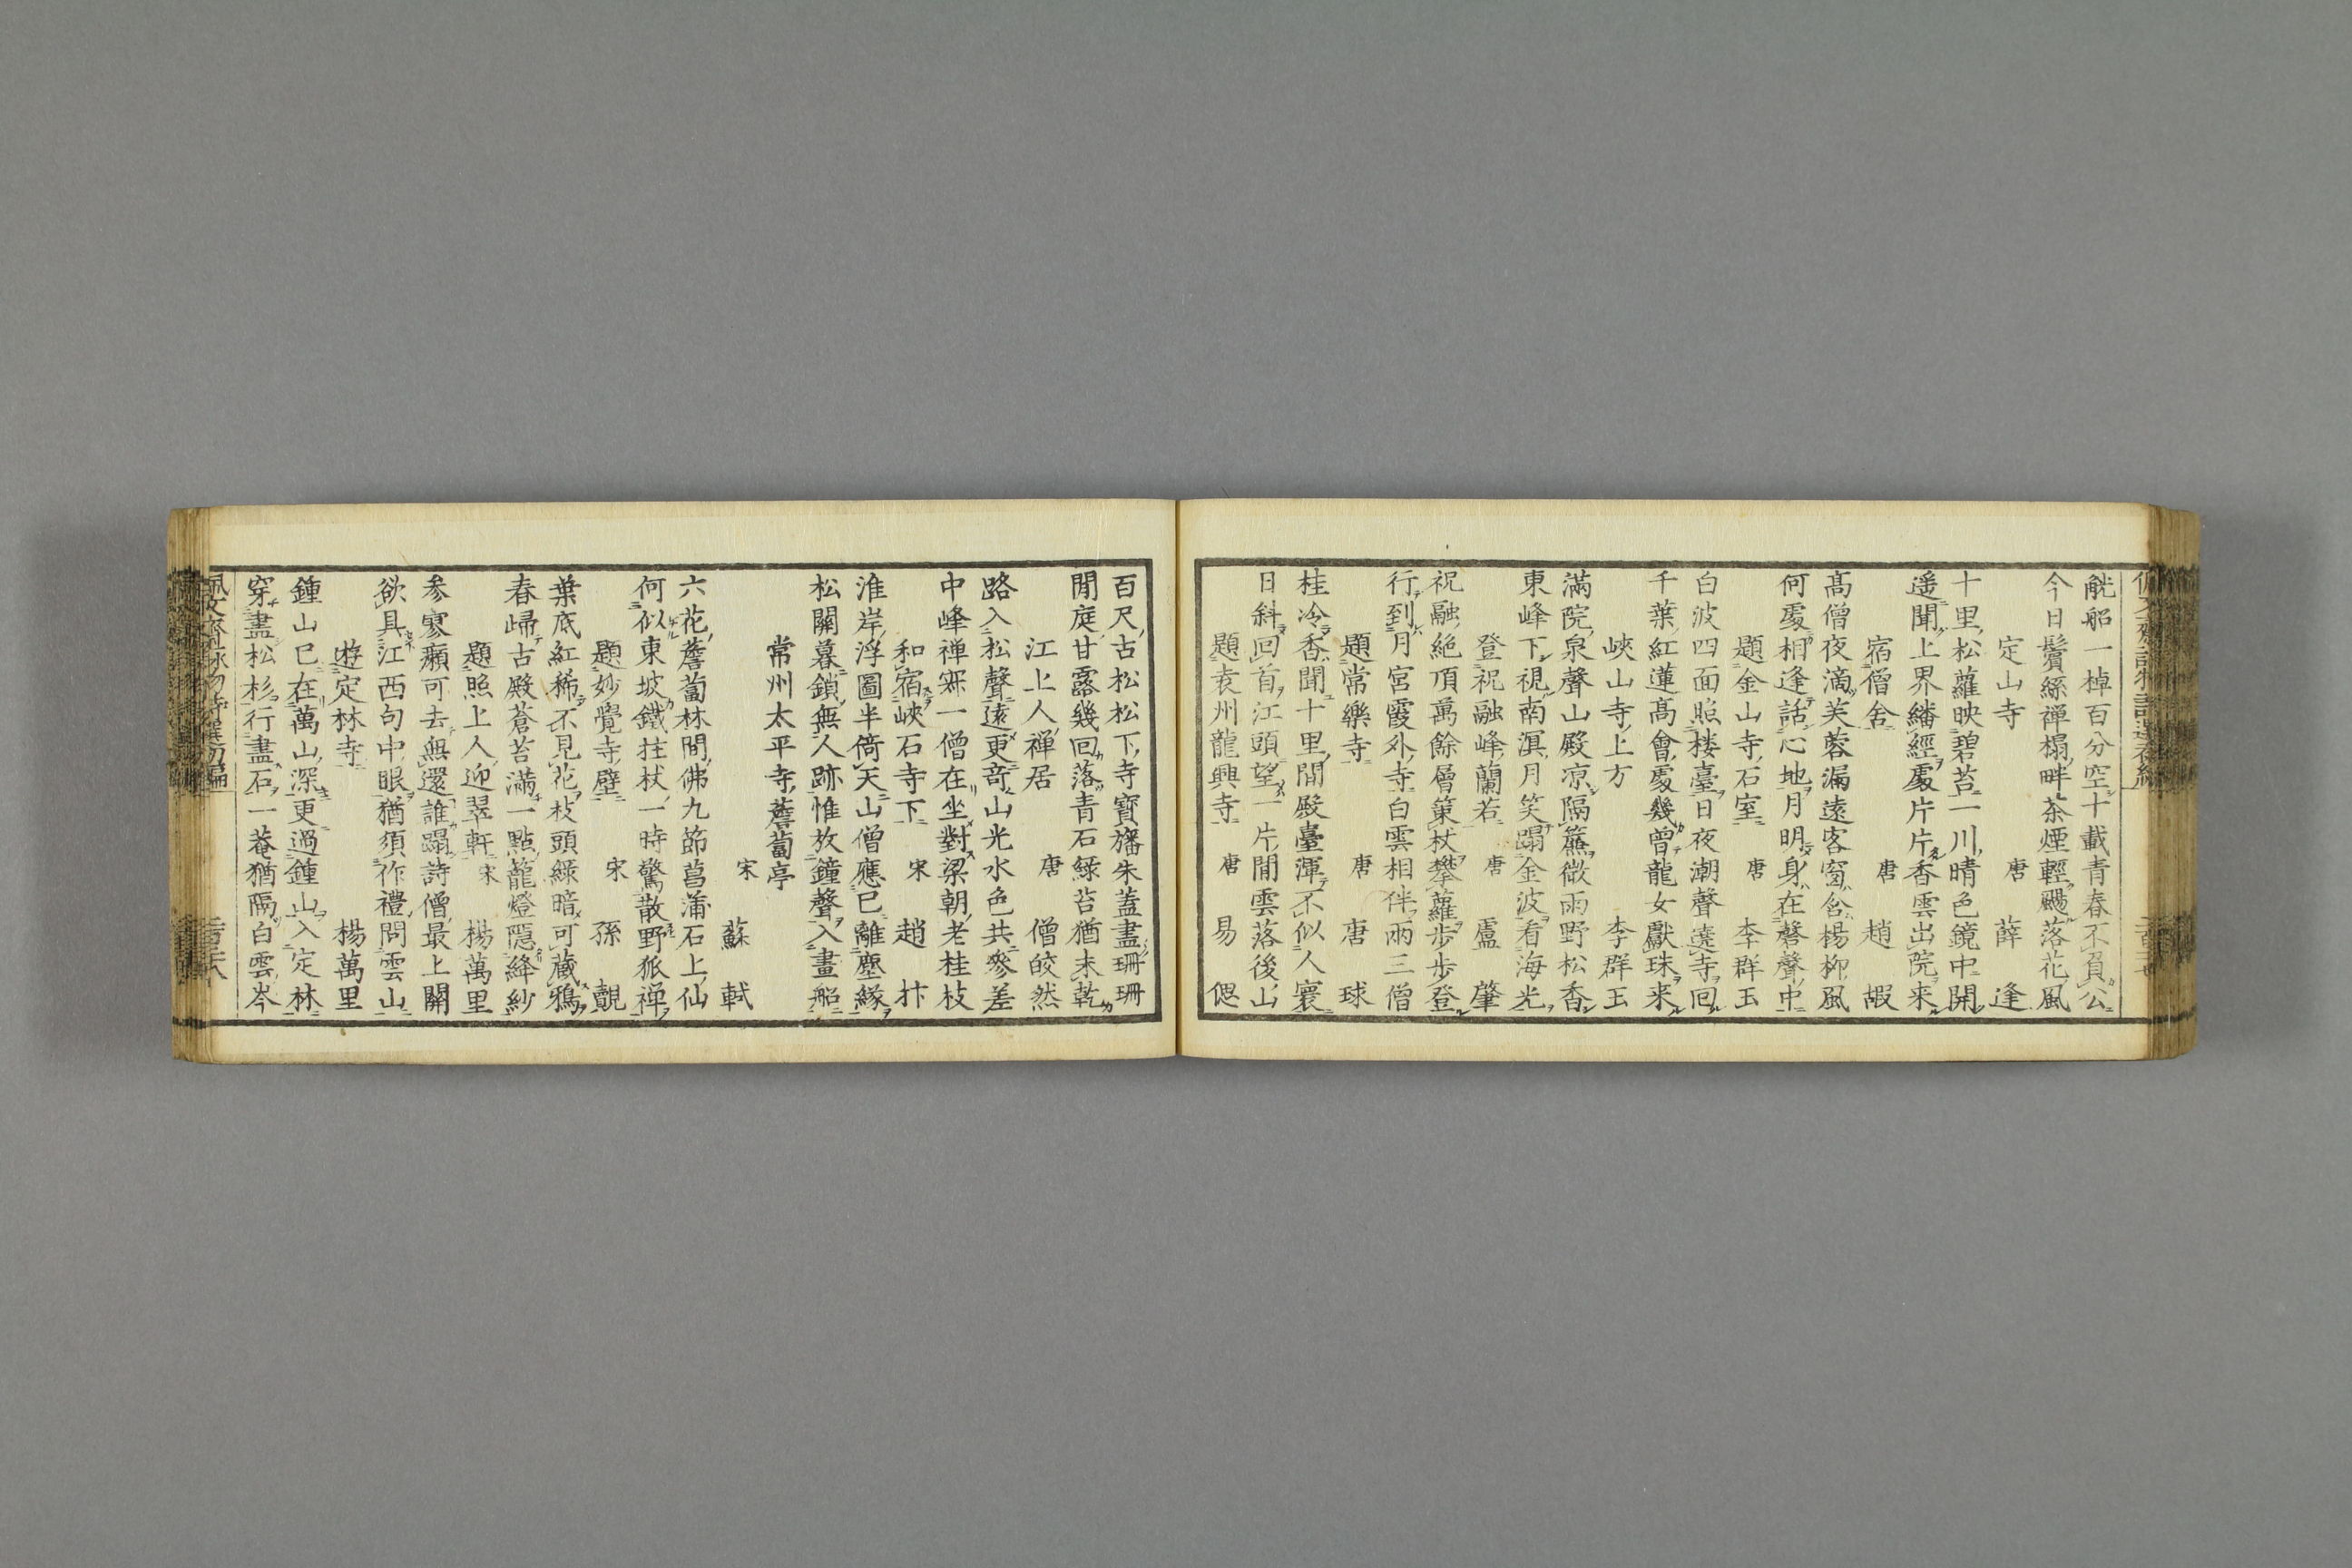 觥船一棹百分空十載青春不負公
今日鬢絲禅榻畔茶煙輕颺落花風
定山寺 唐 薛逢
十里松蘿映碧苔一川晴色鏡中開
遥聞上界繙經處片片香雲出院来
宿僧舍 唐 趙嘏
髙僧夜滴芙蓉漏遠客窓含楊柳風
何處相逢話心地月明身在磬聲中
題金山寺石室 唐 李群玉
白波四面照楼臺日夜潮聲遶寺回
千葉紅蓮髙會處幾曽龍女獻珠来
峽山寺上方 李群玉
滿院泉聲山殿凉隔簾微雨野松香
東峰下視南溟月笑蹋金波看海光
登祝融峰蘭若 唐 盧肇
祝融絶頂萬餘層策杖攀蘿步步登
行到月宮霞外寺白雲相伴兩三僧
題常樂寺 唐 唐球
桂冷香聞十里間殿臺渾不似人寰
日斜回首江頭望一片閒雲落後山
題袁州龍興寺 唐 易偲
百尺古松松下寺寶旛朱蓋畫珊珊
閒庭甘露幾回落青石緑苔猶未乾
江上人禅居 唐 僧皎然
路入松聲遠更竒山光水色共參差
中峰禅寂一僧在坐對梁朝老桂枝
和宿峽石寺下 宋 趙抃
淮岸浮圖半倚天山僧應已離塵緣
松關暮鎖無人跡惟放鐘聲入畫船
常州太平寺薝蔔亭
宋 蘇軾
六花薝蔔林間佛九節菖蒲石上仙
何似東坡鐵拄杖一時驚散野狐禅
題妙覺寺壁 宋 孫覿
葉底紅稀不見花枝頭緑暗可藏鴉
春歸古殿蒼苔滿一點籠燈隠絳紗
題照上人迎翠軒 宋 楊萬里
参寥癩可去無還誰蹋詩僧最上關
欲具江西句中眼猶須作禮問雲山
遊定林寺 楊萬里
鍾山已在萬山深更過鍾山入定林
穿盡松杉行盡石一菴猶隔白雲岑